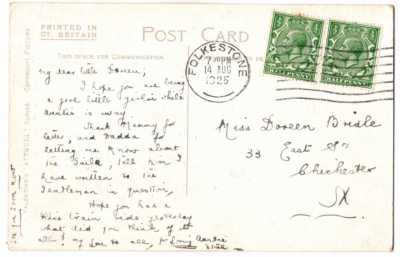 PRINTED IN
GT. BRITAIN
POST CARD
THIS SPACE FOR COMMUNICATION
FOLKESTONE
14 AUG
1925
HALFPENNY
HALFPENNY
my dear little Doreen,
I hope you are being
a good little girlie while
auntie is away
Thank Mummy for
letter, and Dadda for
letting me know about
the, tell him I
have written to the
Gentleman in question,
Hope you had a
nice train ride yesterday
what did you think of it
all? my love to all, Auntie
Miss Doreen
33 East St
Chichester
SX.